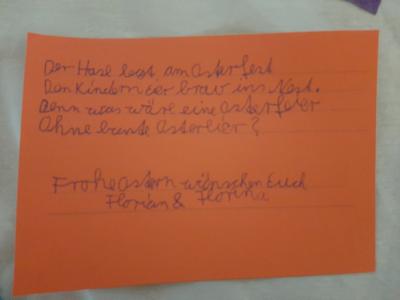 Der Hase legt am Osterfest
Den Kindern eier brav ins Nest.
Denn was wäre eine osterfeier
Ohne bunte Osterlier?
Frohe Ostern wünschen Euch
Florian & Florina